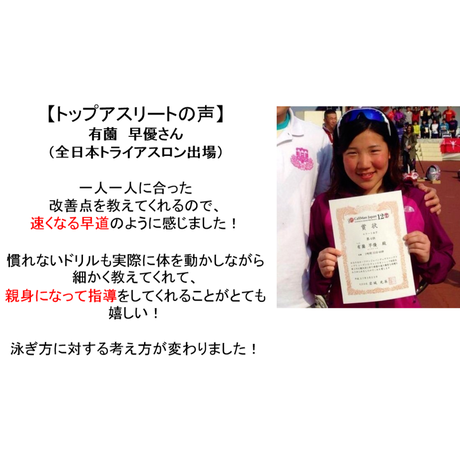 【トップアスリートの声】
有薗 早優さん
（全日本トライアスロン出場）
一人一人に合った
改善点を教えてくれるので、
速くなる早道のように感じました！
慣れないドリルも実際に体を動かしながら
細かく教えてくれて、
親身になって指導をしてくれることがとても
嬉しい！
泳ぎ方に対する考え方が変わりました！
賞状